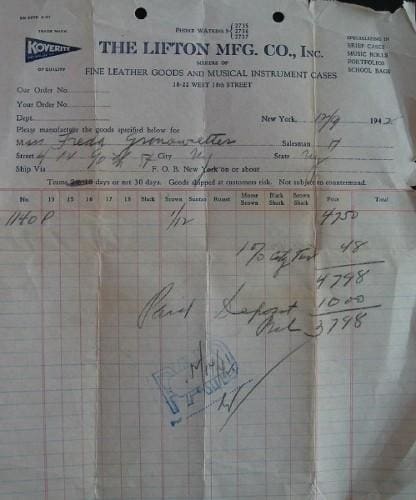 PHONE WATKINS 9- 2735 2736 2737
TRADE MARK
KOVERITE
OF QUALITY
THE LIFTON MFG. CO., INC.
MAKERS OF
FINE LEATHER GOODS AND MUSICAL INSTRUMENT CASES
18-22 WEST 18th STREET
SPECIALIZING IN
BRIEF CASES
MUSIC ROLLS
PORTFOLIOS
SCHOOL BAGS
Our Order No.
Your Order No.
Dept. New York, 12/9 1942
Please manufacture the goods specified below for
Miss Freda Salesman H
Street 414 90 City NY State NY
Ship Via F. O. B. New York on or about
Terms days or net 30 days. Goods shipped at customers risk. Not subject to countermand.
No. 13 15 16 17 18 Black Brown Suntan Russet Moose Brown Black Shark Brown Shark Price Total
1140P 1/12 4750
1% City Tax 48
4798
Paid Deposit 1000
Bal 3798
PAID